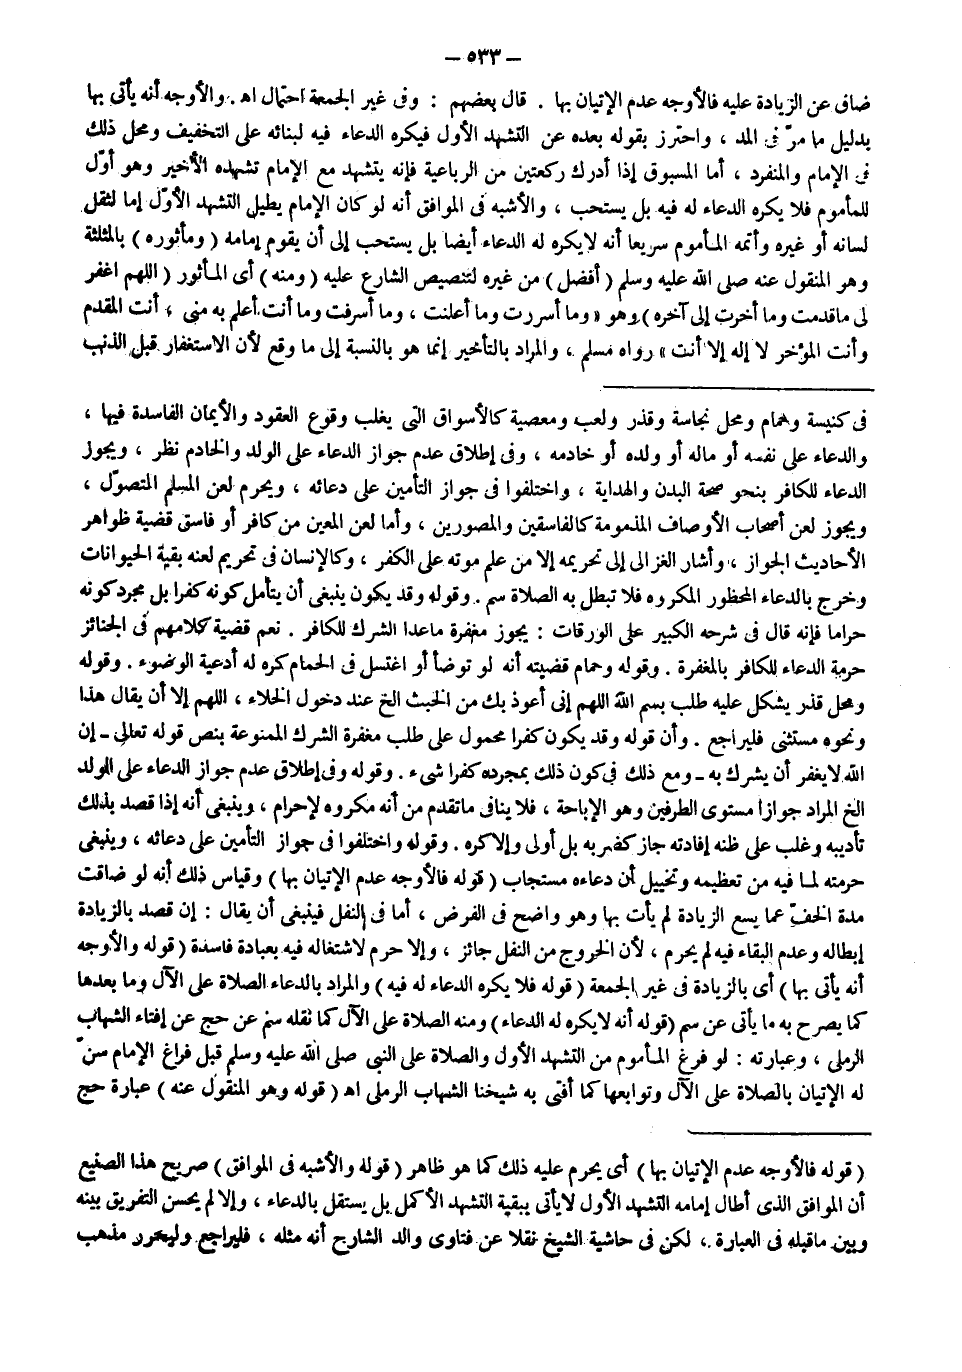 — ٥٣٣ —
ضاق عن الزيادة عليه فالأوجه عدم الإتيان بها . قال بعضهم : وفى غير الجمعة احتمال اهـ . والأوجه أنه يأتى بها
بدليل ما مرّ فى المد ، واحترز بقوله بعده عن التشهد الأول فيكره الدعاء فيه لبنائه على التخفيف ومحل ذلك
فى الإمام والمنفرد ، أما المسبوق إذا أدرك ركعتين من الرباعية فإنه يتشهد مع الإمام تشهده الأخير وهو أوّل
للمأموم فلا يكره الدعاء له فيه بل يستحب ، والأشبه فى الموافق أنه لو كان الإمام يطيل التشهد الأوّل إما لثقل
لسانه أو غيره وأتمه المأموم سريعا أنه لايكره له الدعاء أيضا بل يستحب إلى أن يقوم إمامه ( ومأثوره ) بالمثلثة
وهو المنقول عنه صلى الله عليه وسلم ( أفضل ) من غيره لتنصيص الشارع عليه ( ومنه ) أى المأثور ( اللهم اغفر
لى ماقدمت وما أخرت إلى آخره ) وهو « وما أسررت وما أعلنت ، وما أسرفت وما أنت أعلم به منى ، أنت المقدم
وأنت المؤخر لا إله إلا أنت » رواه مسلم ، والمراد بالتأخير إنما هو بالنسبة إلى ما وقع لأن الاستغفار قبل الذنب
فى كنيسة وحمام ومحل نجاسة وقذر ولعب ومعصية كالأسواق التى يغلب وقوع العقود والأيمان الفاسدة فيها ،
والدعاء على نفسه أو ماله أو ولده أو خادمه ، وفى إطلاق عدم جواز الدعاء على الولد والخادم نظر ، ويجوز
الدعاء للكافر بنحو صحة البدن والهداية ، واختلفوا فى جواز التأمين على دعائه ، ويحرم لعن المسلم المتصوّل ،
ويجوز لعن أصحاب الأوصاف المذمومة كالفاسقين والمصورين ، وأما لعن المعين من كافر أو فاسق قضية ظواهر
الأحاديث الجواز ، وأشار الغزالى إلى تحريمه إلا من علم موته على الكفر ، وكالإنسان فى تحريم لعنه بقية الحيوانات
وخرج بالدعاء المحظور المكروه فلا تبطل به الصلاة سم . وقوله وقد يكون ينبغى أن يتأمل كونه كفرا بل مجرد كونه
حراما فإنه قال فى شرحه الكبير على الورقات : يجوز مغفرة ماعدا الشرك للكافر . نعم قضية كلامهم فى الجنائز
حرمة الدعاء للكافر بالمغفرة . وقوله وحمام قضيته أنه لو توضأ أو اغتسل فى الحمام كره له أدعية الوضوء . وقوله
ومحل قذر يشكل عليه طلب بسم الله اللهم إنى أعوذ بك من الخبث الخ عند دخول الخلاء ، اللهم إلا أن يقال هذا
ونحوه مستثنى فليراجع . وأن قوله وقد يكون كفرا محمول على طلب مغفرة الشرك الممنوعة بنص قوله تعالى ـ إن
الله لايغفر أن يشرك به ـ ومع ذلك فى كون ذلك بمجرده كفرا شىء . وقوله وفى إطلاق عدم جواز الدعاء على الولد
الخ المراد جوازا مستوى الطرفين وهو الإباحة ، فلا ينافى ماتقدم من أنه مكروه لإحرام ، وينبغى أنه إذا قصد بذلك
تأديبه وغلب على ظنه إفادته جاز كضربه بل أولى وإلاكره . وقوله واختلفوا فى جواز التأمين على دعائه ، وينبغى
حرمته لما فيه من تعظيمه وتخييل أن دعاءه مستجاب ( قوله فالأوجه عدم الإتيان بها ) وقياس ذلك أنه لو ضاقت
مدة الخفّ عما يسع الزيادة لم يأت بها وهو واضح فى الفرض ، أما فى النفل فينبغى أن يقال : إن قصد بالزيادة
إبطاله وعدم البقاء فيه لم يحرم ، لأن الخروج من النفل جائز ، وإلا حرم لاشتغاله فيه بعبادة فاسدة ( قوله والأوجه
أنه يأتى بها ) أى بالزيادة فى غير الجمعة ( قوله فلا يكره الدعاء له فيه ) والمراد بالدعاء الصلاة على الآل وما بعدها
كما يصرح به ما يأتى عن سم ( قوله أنه لايكره له الدعاء ) ومنه الصلاة على الآل كما نقله سم عن حج عن إفتاء الشهاب
الرملى ، وعبارته : لو فرغ المأموم من التشهد الأول والصلاة على النبى صلى الله عليه وسلم قبل فراغ الإمام سنّ
له الإتيان بالصلاة على الآل وتوابعها كما أفتى به شيخنا الشهاب الرملى اهـ ( قوله وهو المنقول عنه ) عبارة حج
( قوله فالأوجه عدم الإتيان بها ) أى يحرم عليه ذلك كما هو ظاهر ( قوله والأشبه فى الموافق ) صريح هذا الصنيع
أن الموافق الذى أطال إمامه التشهد الأول لايأتى ببقية التشهد الأكمل بل يستقل بالدعاء ، وإلا لم يحسن التفريق بينه
وبين ماقبله فى العبارة ، لكن فى حاشية الشيخ نقلا عن فتاوى والد الشارح أنه مثله ، فليراجع وليحرر مذهب